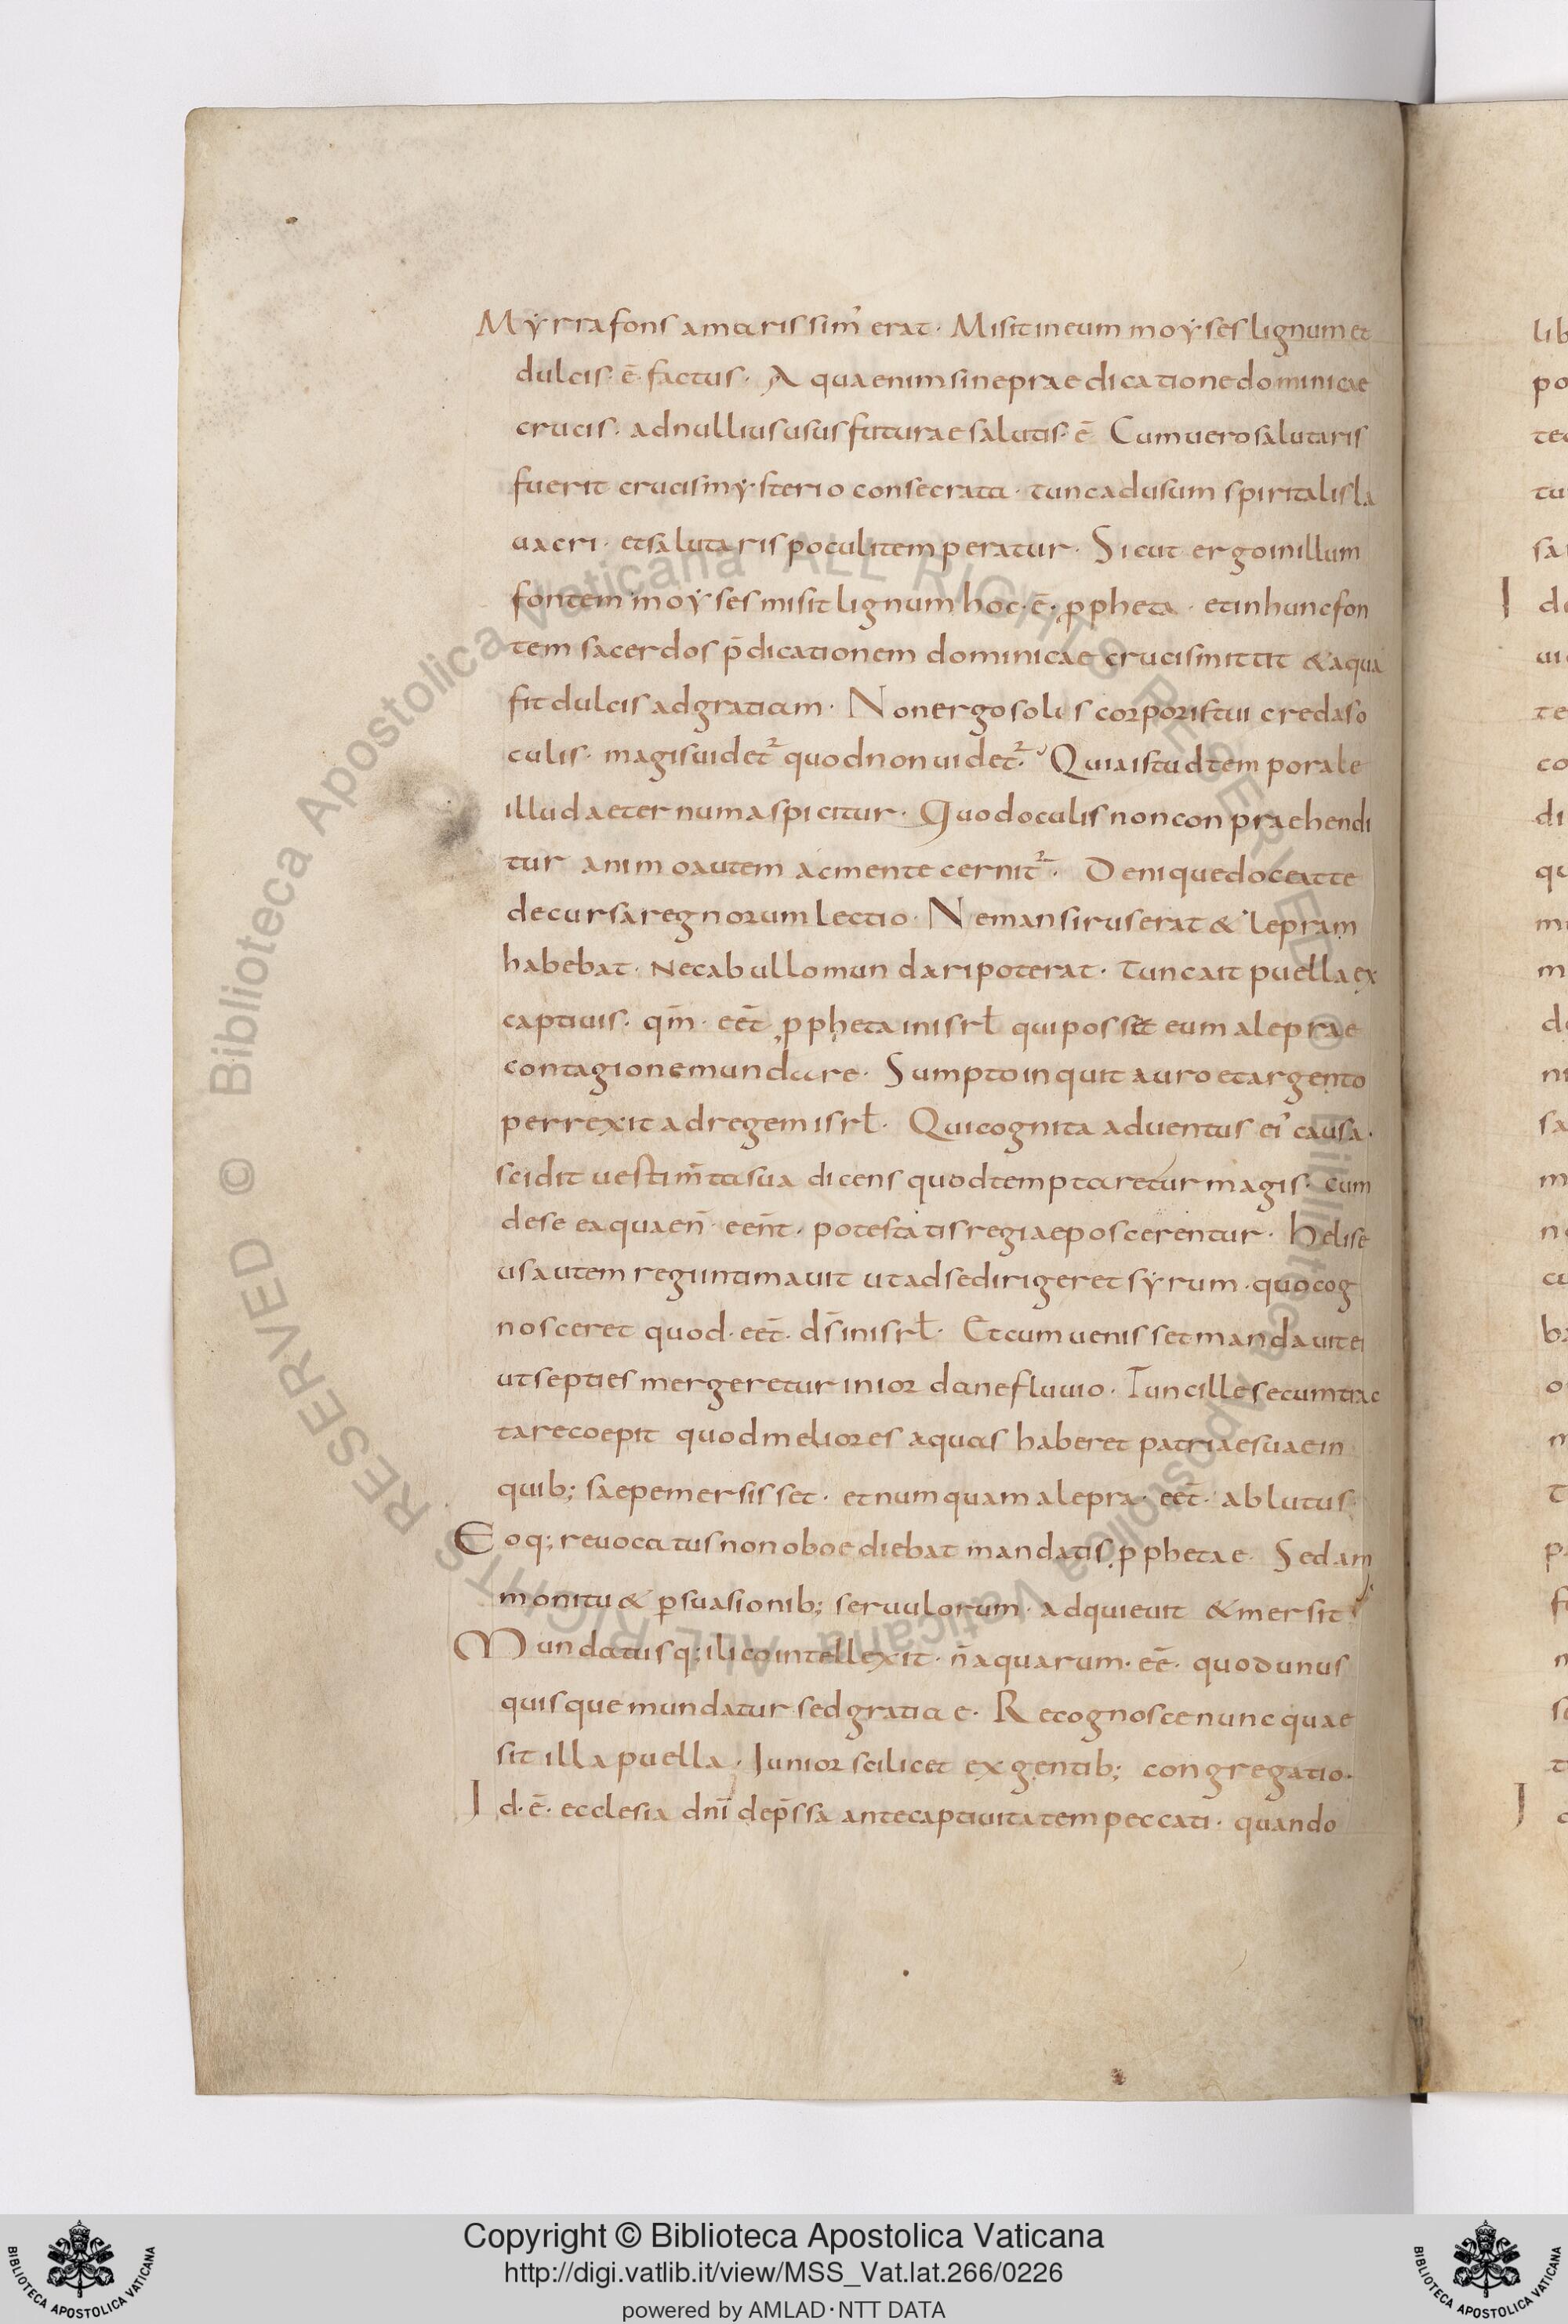 Myrra fons amarissim᾽ erat · Misit in eum moyses lignum et
dulcis · ē · factus · Aqua enim sine praedicatione dominicae
crucis · ad nullius usus futurae salutis · ē Cum uero salutaris
fuerit crucis mysterio consecrata · tunc ad usum spiritalis la
uacri · et salutaris poculi temperatur · Sicut ergo in illum
fontem moyses misit lignum hoc · ē · ꝓpheta · et in hunc fon
tem sacerdos p̄dicationem dominicae crucis mittit & aqua
fit dulcis ad gratiam · Non ergo solis corporis tui credas o
culis · magis uidet᷑ quod non uidet᷑ · Quia istud temporale
illud aeternum aspicitur · Quod oculis non conpraehendi
tur animo autem ac mente cernit᷑ · Denique doceat te
decursa regnorum lectio · Neman sirus erat & lepram
habebat · Nec ab ullo mundari poterat · Tunc ait puella ex
captiuis · qm̄ · eēt ꝓpheta in isrł qui posset eum a leprae
contagione mundare · Sumpto inquit auro et argento
perrexit ad regem isrł · Qui cognita aduentus ei᾽ causa ·
scidit uestim̄ta sua dicens quod temptaretur magis · cum
de se ea quae n̄ · eēnt · potestatis regiae poscerentur · Helise
us autem regi intimauit ut ad se dirigeret syrum · quo cog
nosceret quod · eēt · ds̄ in isrł · Et cum uenisset mandauit ei
ut septies mergeretur in iordane fluuio · Tunc ille secum trac
tare coepit quod meliores aquas haberet patriae suae in
quib; saepe mersisset · et numquam a lepra · eēt · ablutus
Eoq; reuocatus non oboediebat mandatis ꝓphetae · Sed am
monitu & ꝑsuasionib; seruulorum · adquieuit & mersit
Mundatusq; ilico intellexit · n̄ aquarum · eē · quod unus
quisque mundatur sed gratiae · Recognosce nunc quae
sit illa puella · Iunior scilicet ex gentib; congregatio ·
Id · ē · ecclesia dnī dep̄ssa ante captiuitatem peccati · quando
Copyright © Biblioteca Apostolica Vaticana
http://digi.vatlib.it/view/MSS_Vat.lat.266/0226
powered by AMLAD·NTT DATA